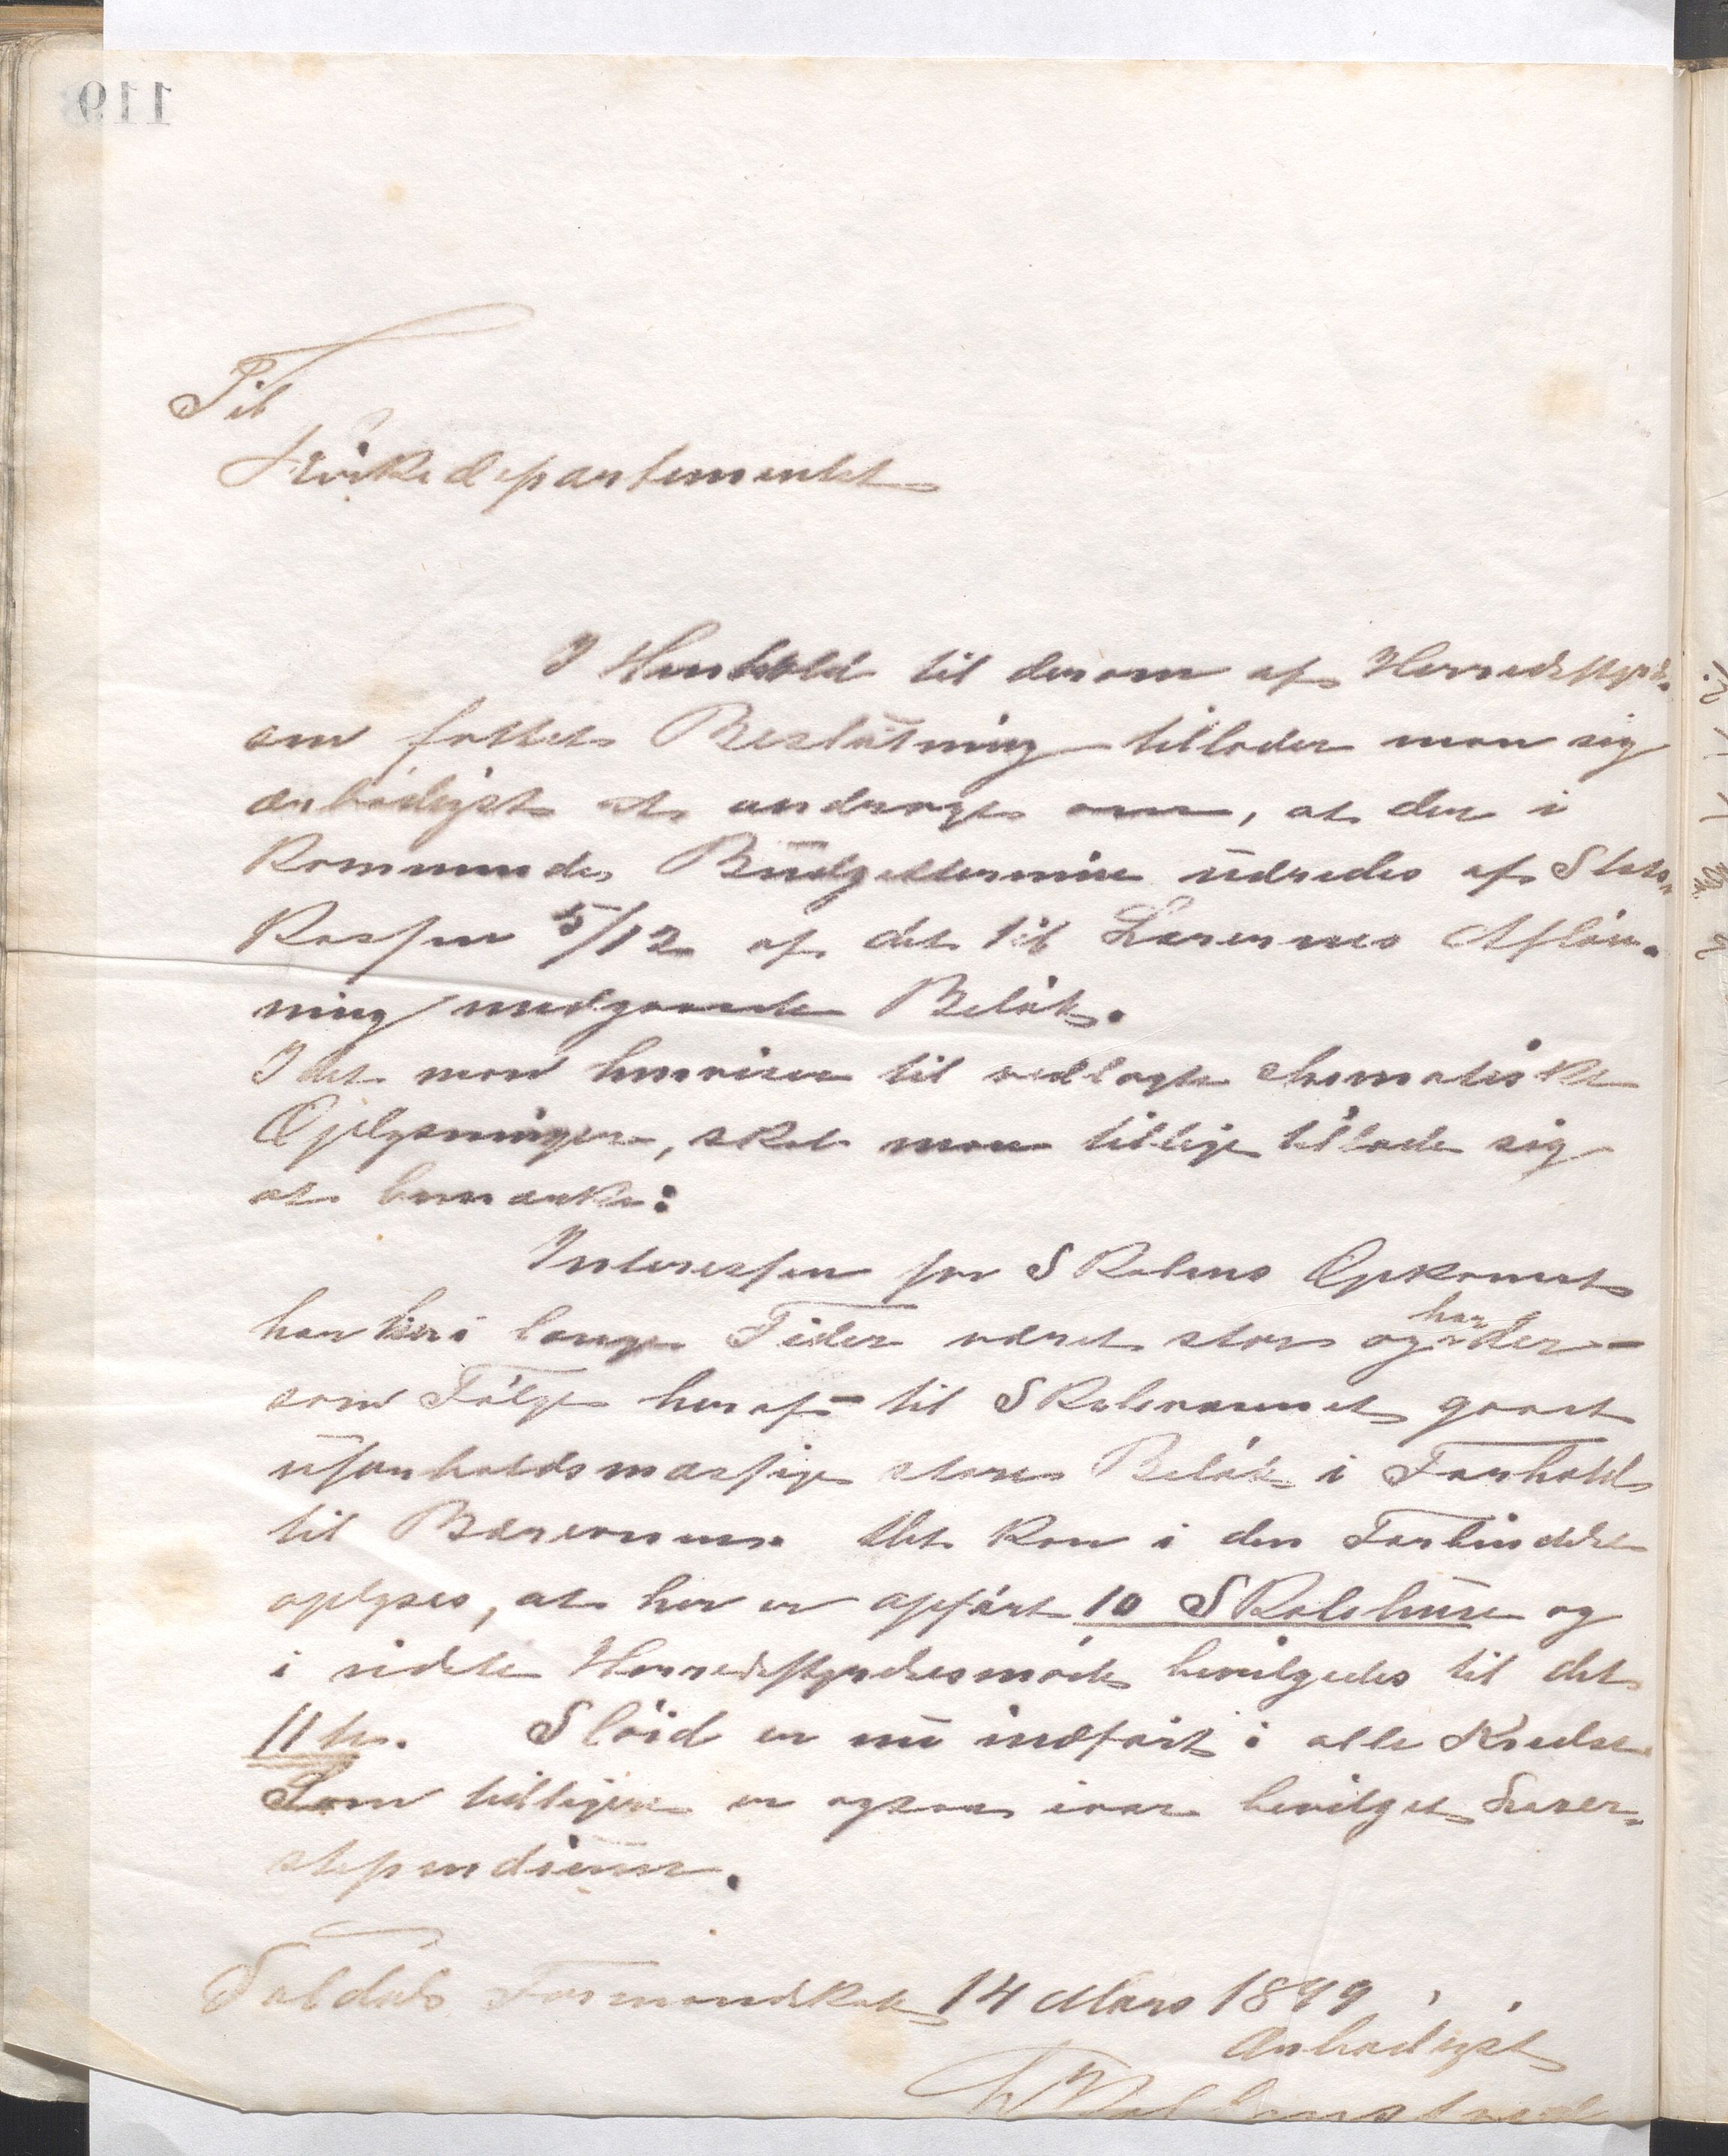 119
Til
Kirkedepartementet
I Henhold til derom af Herredsstyrel-
sen fattet Beslutning tillader man sig
ærbødigst at andrage om, at der i
kommende Budgettermin udredes af Stats-
kassen 5/12 af det til Lærernes Afløn-
ning medgaaende Beløb.
Idet man henviser til vedlagte skematiske
Oplysninger, skal man tillige tillade sig
at bemærke:
Interessen for Skolens Opkomst
har her i lange Tider været stor og har der -
som Følge heraf - til Skolevæsenet gaaet
uforholdsmæssige store Beløb i Forhold
til Bæreevnen. Det kan i den Forbindelse
oplyses, at her er opført 10 Skolehuse og
i sidste Herredsstyrelsesmøde bevilgedes til det
11te. Sløid er nu indført i alle Kredse.
Som tidligere er ogsaa iaar bevilget Lærer-
stipendium.
Saldals Formandskab 14 Mars 1899
Ærbødigst